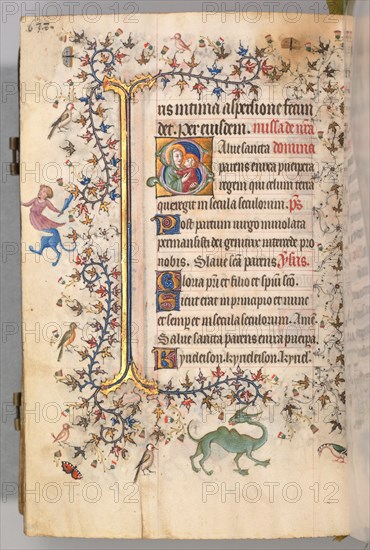 tis intima aspersione fecun
det. Per eiusdem. missa de
Salve sancta domina
parens enixa puerpera
regem qui celum terra
que regit in secula seculorum. ps
Post partum virgo inviolata
permansisti dei genitrix intercede pro
nobis. Salve scā parens. Vſus.
Gloria pri et filio et spiui sco.
Sicut erat in principio et nunc
et semper et in secula seculorum. Ame
Salve sancta parens enixa puerpa.
Kyrieleison. kyrieleison. kyriel.
PHOTO 12